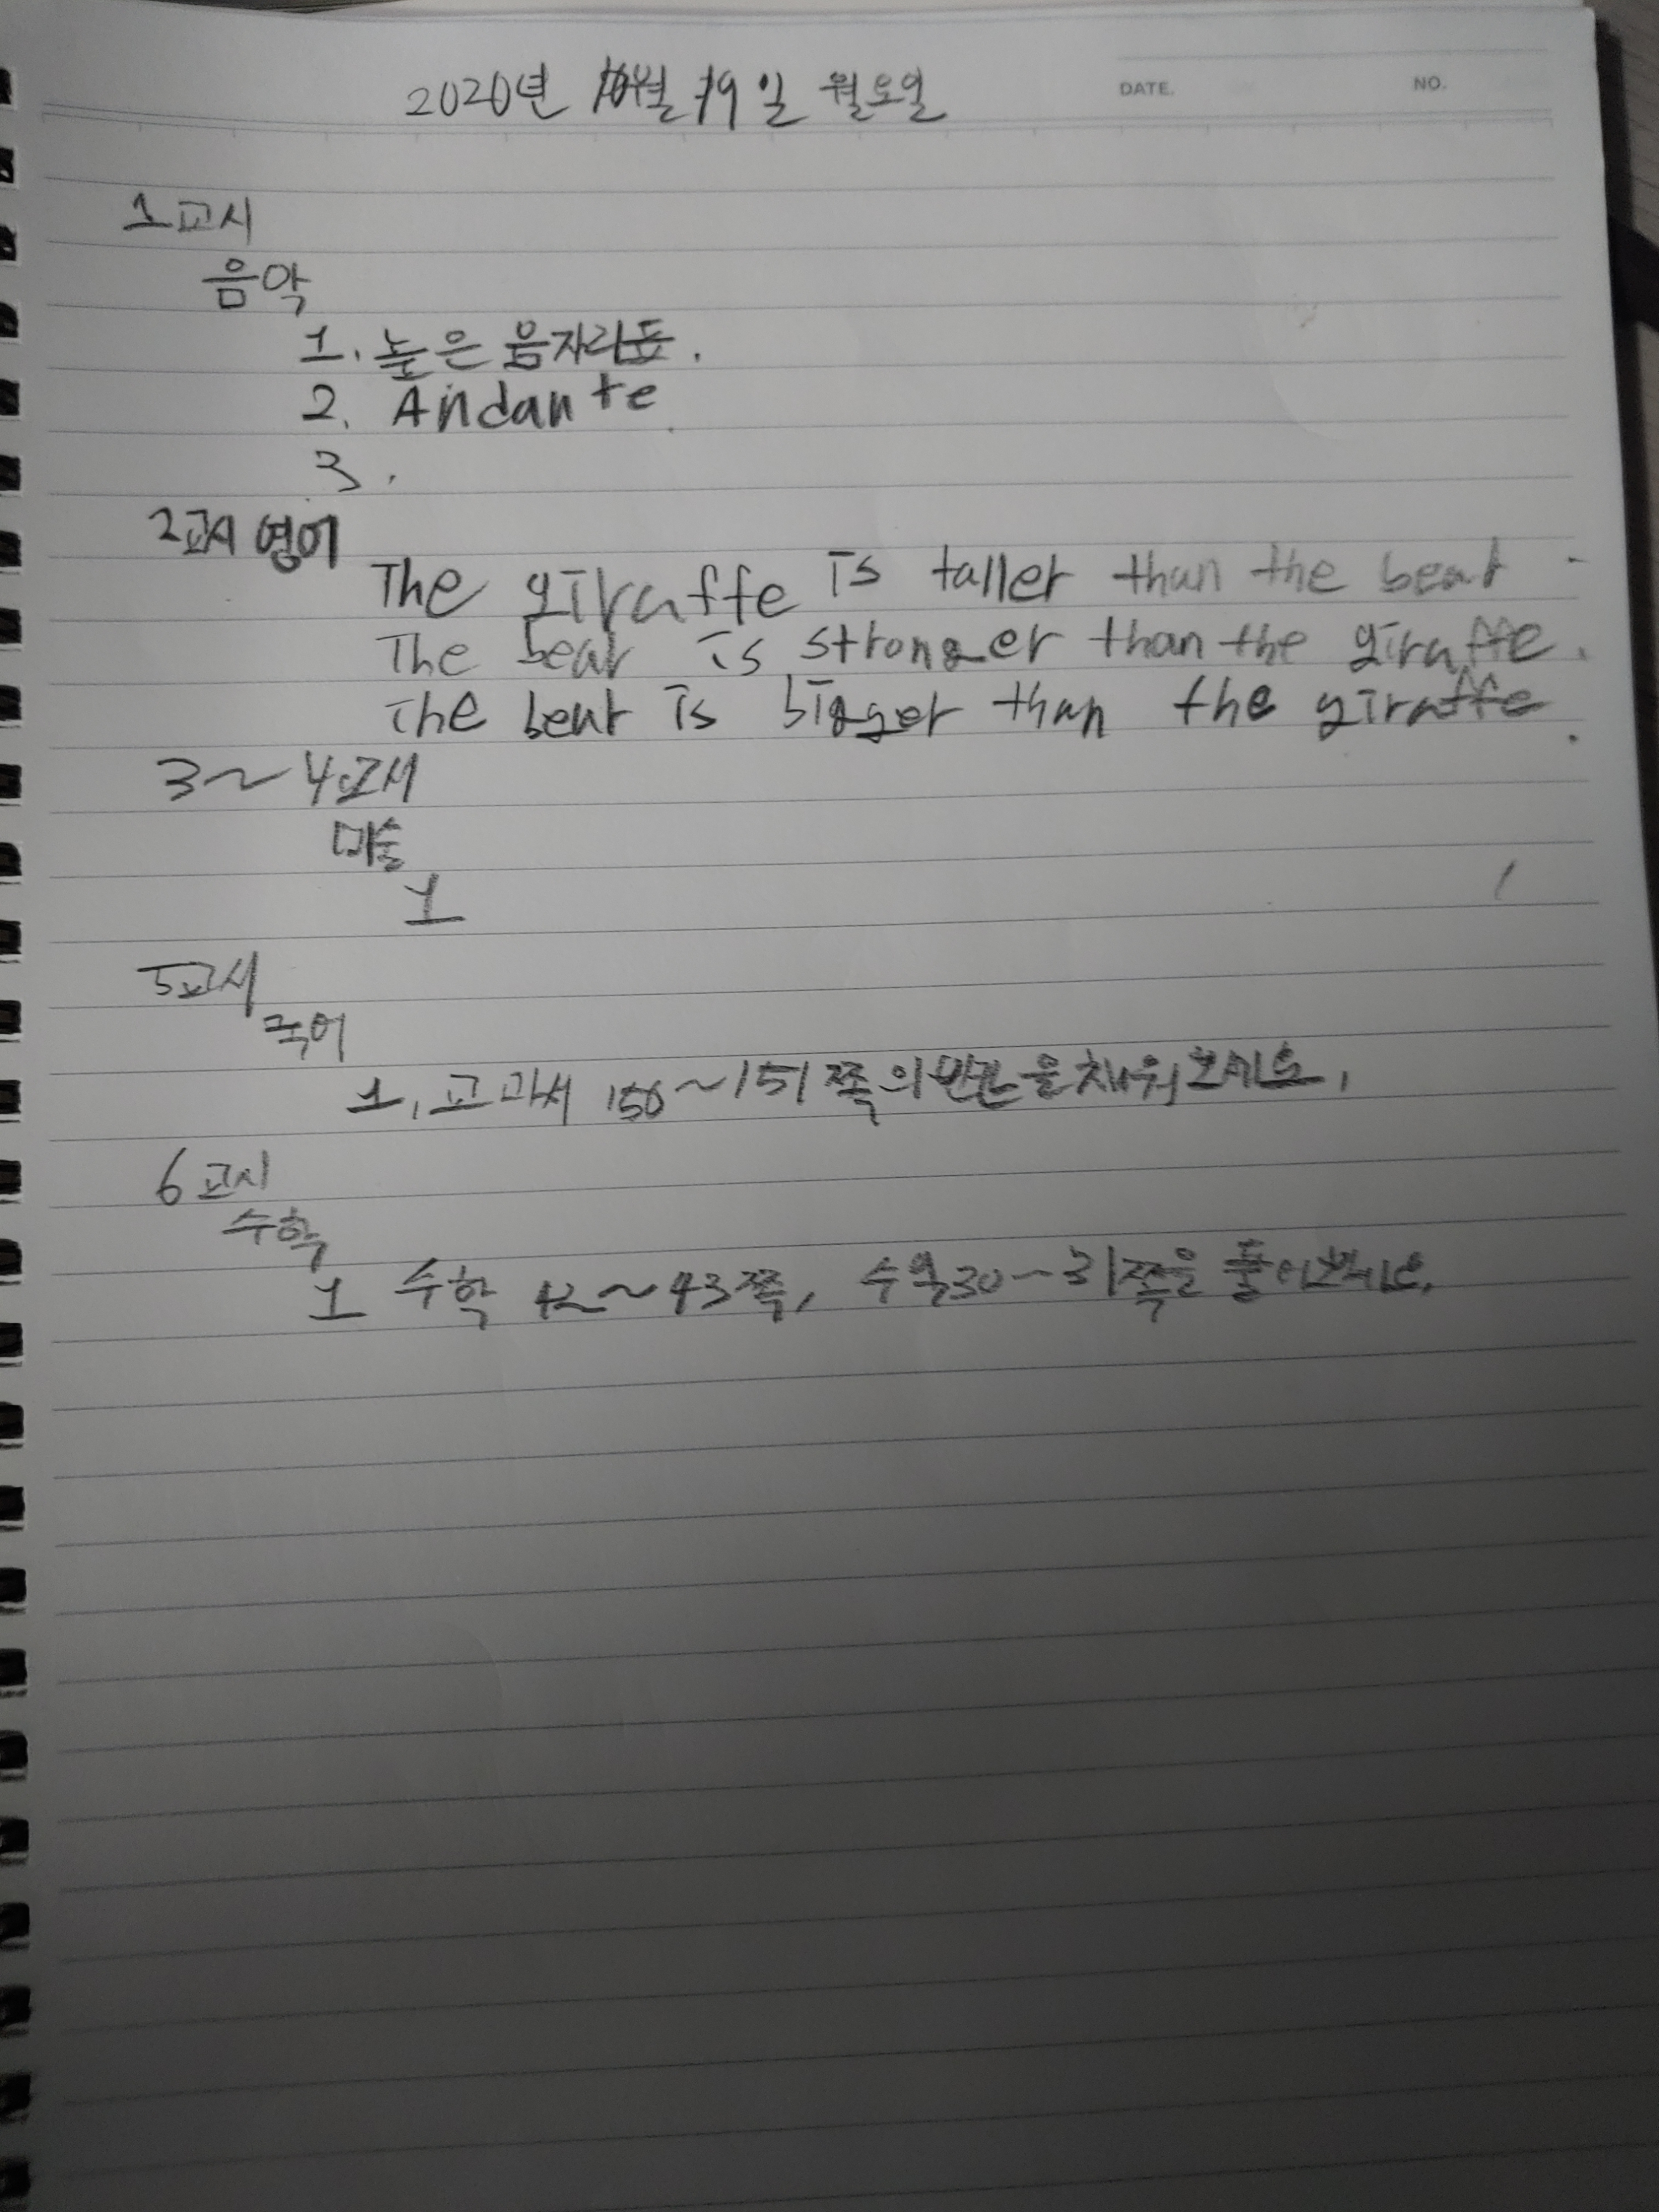 2020년 10월 19일 월요일
DATE. NO.
1교시
음악
1. 높은 음자리표.
2. Andante.
3.
2교시 영어
The giraffe is taller than the bear.
The bear is stronger than the giraffe.
The bear is bigger than the giraffe.
3~4교시
미술
1
5교시
국어
1. 교과서 150~151쪽의 빈칸을 채워보세요.
6교시
수학
1 수학 42~43쪽, 수익30~31쪽을 풀어보세요.